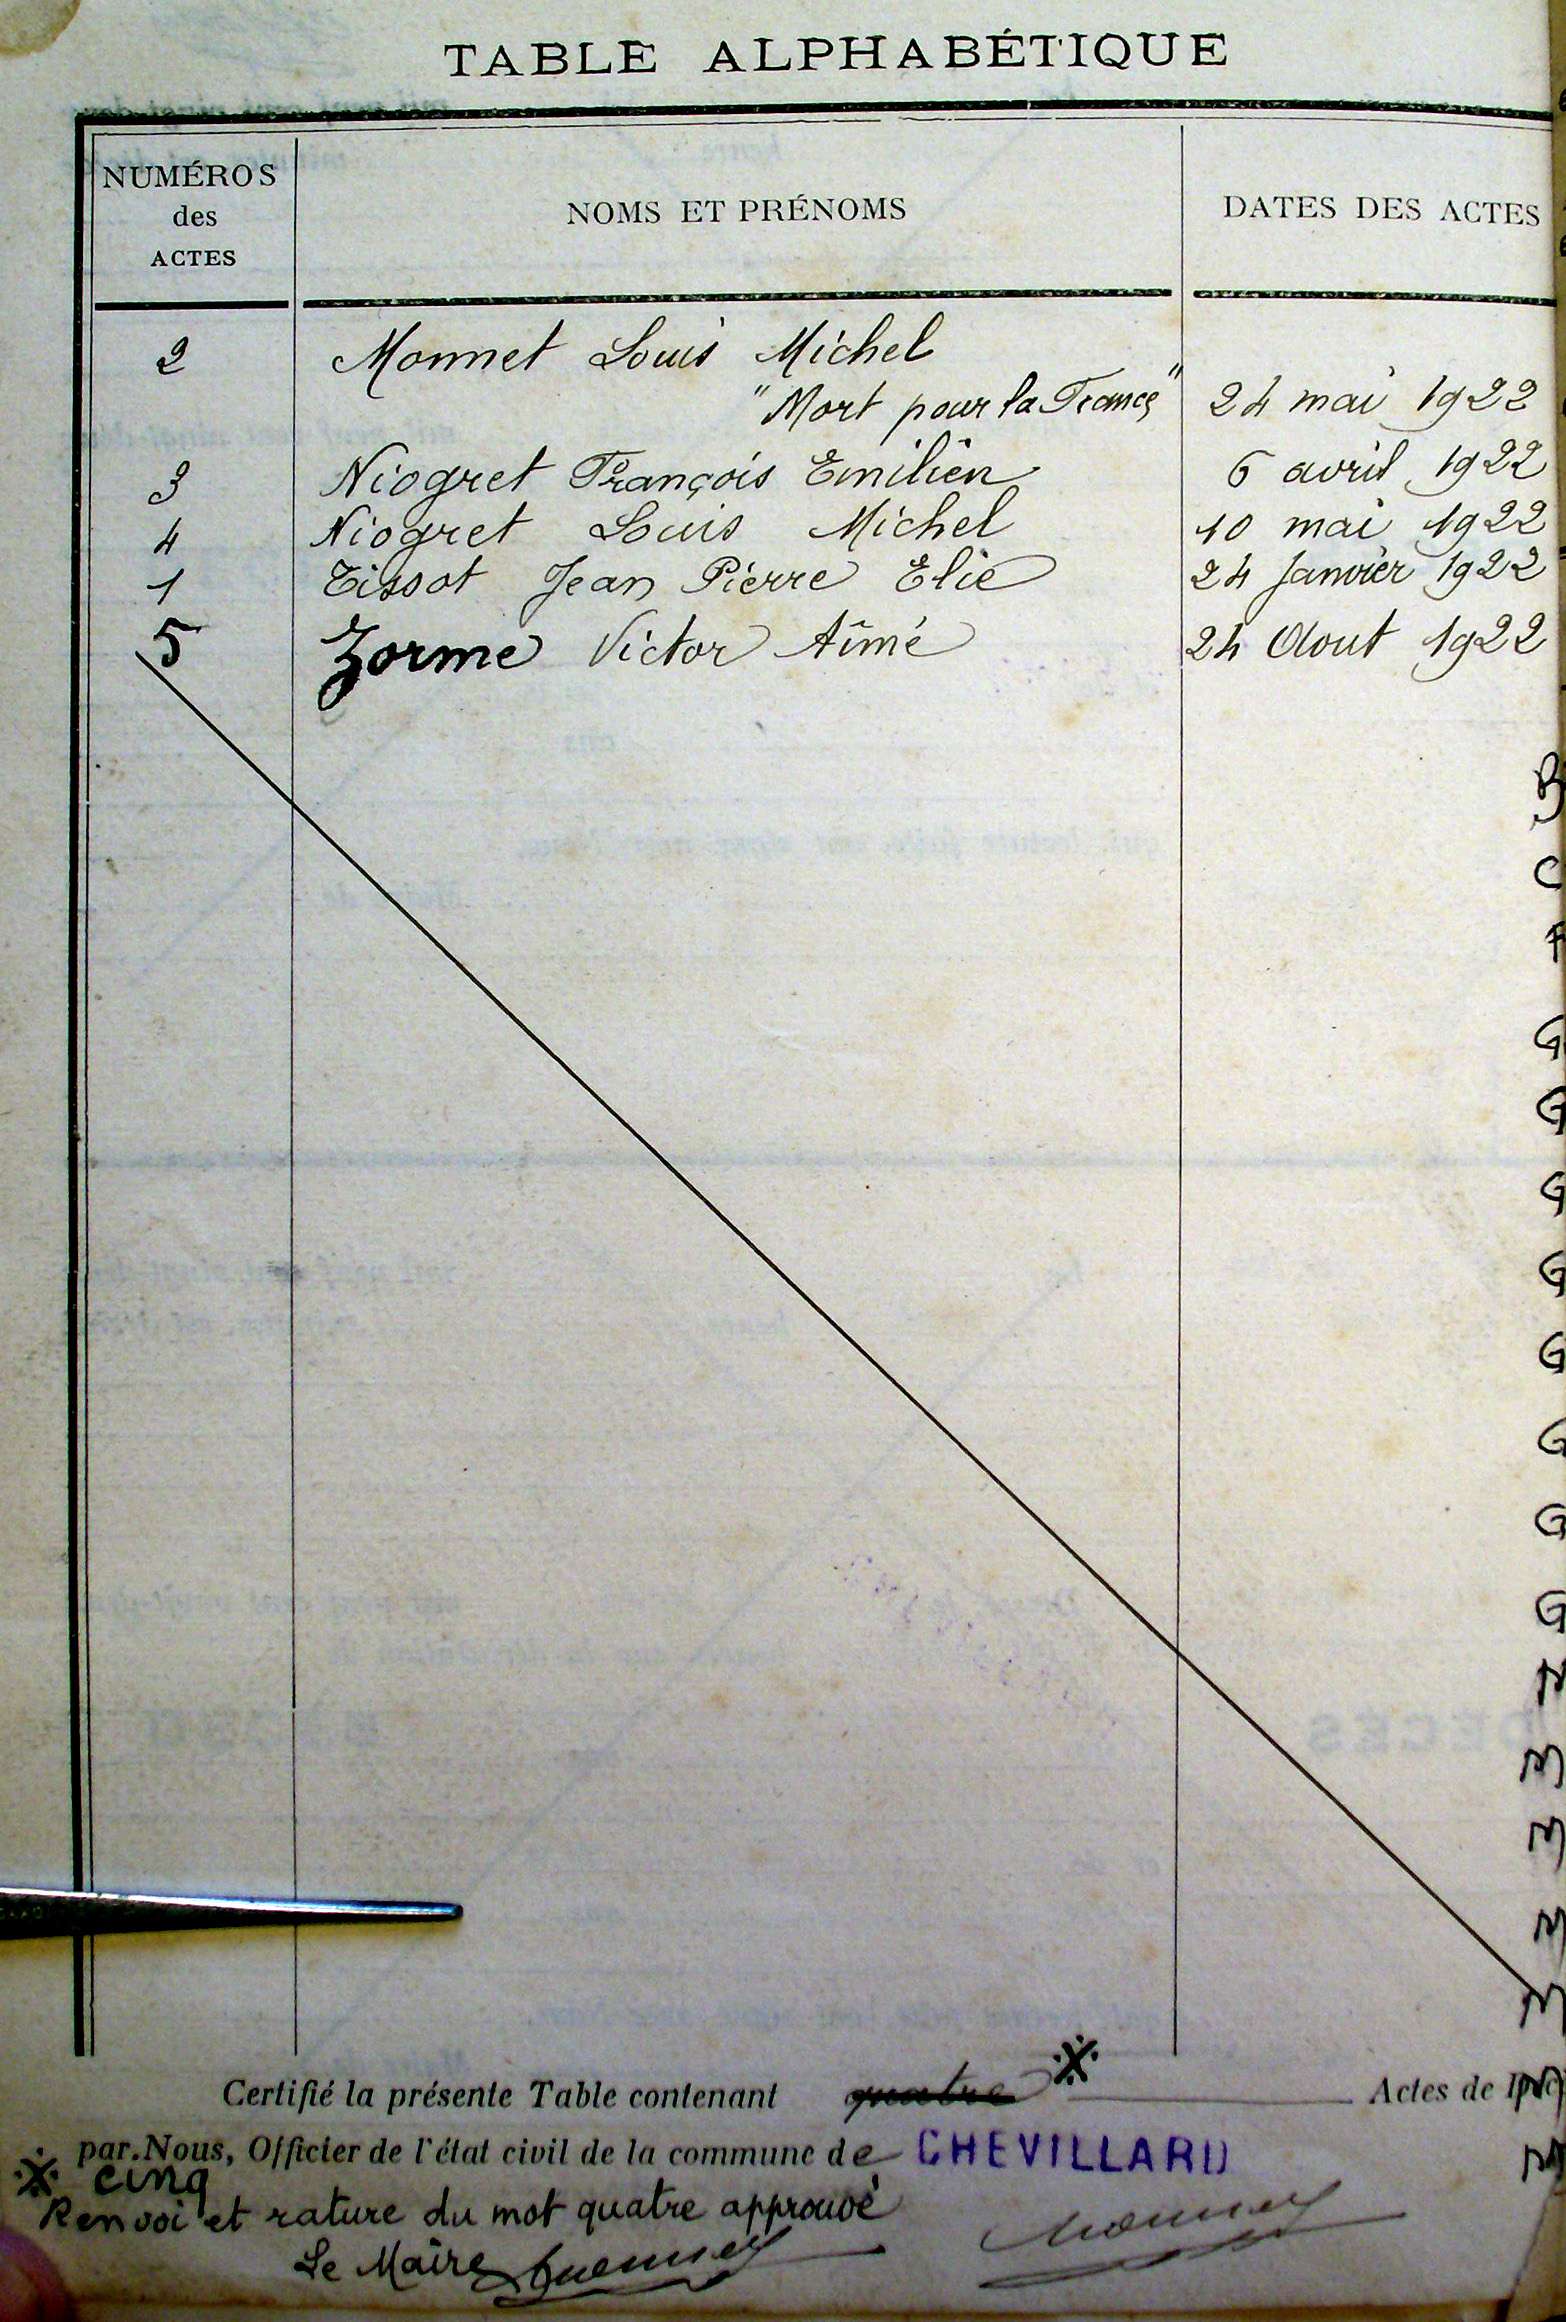 TABLE ALPHABÉTIQUE
NUMÉROS des ACTES NOMS ET PRÉNOMS DATES DES ACTES
2 Monnet Louis Michel
"Mort pour la France" 24 mai 1922
3 Niogret François Emilien 6 avril 1922
4 Niogret Louis Michel 10 mai 1922
1 Tissot Jean Pierre Elie 24 Janvier 1922
5 Zorme Victor Aimé 24 Aout 1922
Certifié la présente Table contenant quatre Actes de
par Nous, Officier de l'état civil de la commune de CHEVILLARD
cinq
Renvoi et rature du mot quatre approuvé
Le Maire